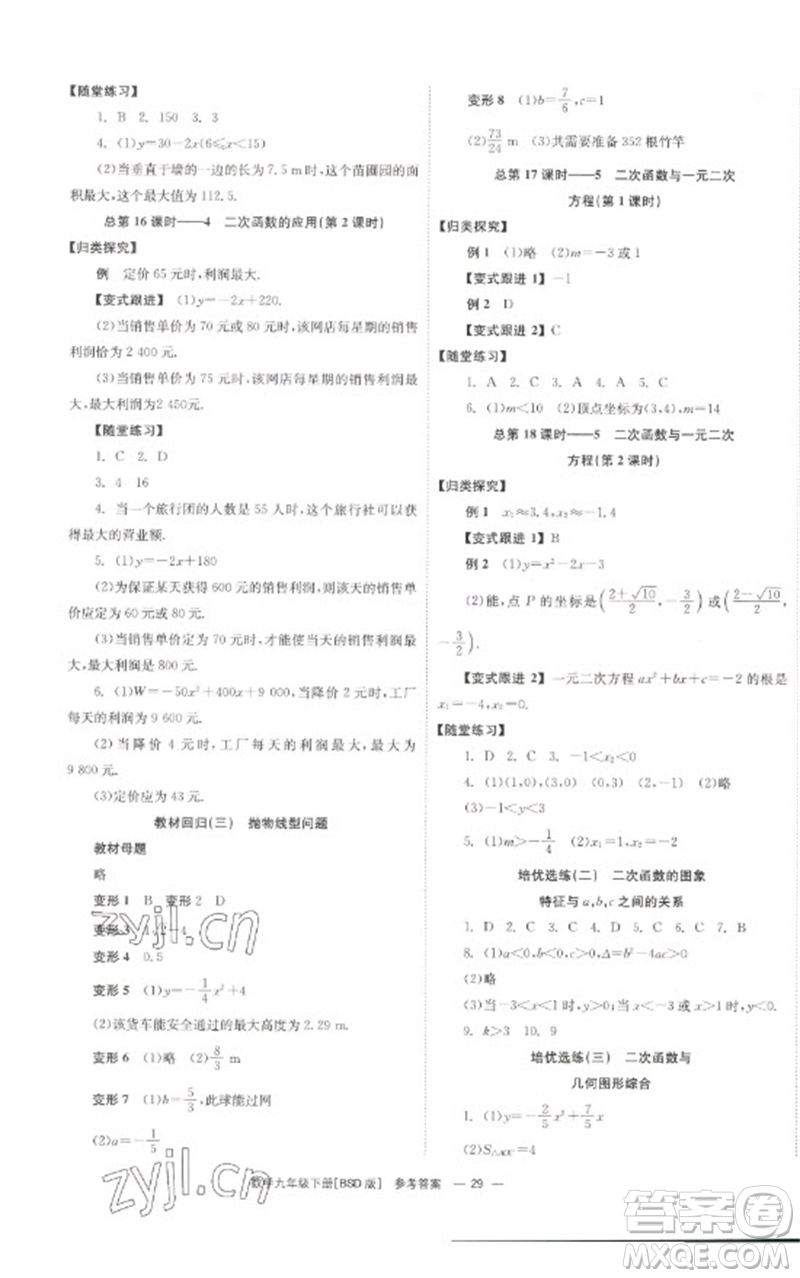 【随堂练习】
1. B　2. 150　3. 3
4. (1)y=30-2x(6≤x<15)
(2)当垂直于墙的一边的长为 7.5 m 时,这个苗圃园的面
积最大,这个最大值为 112.5.
总第 16 课时——4　二次函数的应用(第 2 课时)
【归类探究】
例　定价 65 元时,利润最大.
【变式跟进】 (1)y=-2x+220.
(2)当销售单价为 70 元或 80 元时,该网店每星期的销售
利润恰为 2 400 元.
(3)当销售单价为 75 元时,该网店每星期的销售利润最
大,最大利润为2 450元.
【随堂练习】
1. C　2. D
3. 4　16
4. 当一个旅行团的人数是 55 人时,这个旅行社可以获
得最大的营业额.
5. (1)y=-2x+180
(2)为保证某天获得 600 元的销售利润,则该天的销售单
价应定为 60 元或 80 元.
(3)当销售单价定为 70 元时,才能使当天的销售利润最
大,最大利润是 800 元.
6. (1)W=-50x²+400x+9 000,当降价 2 元时,工厂
每天的利润为 9 600 元.
(2)当降价 4 元时,工厂每天的利润最大,最大为
9 800 元.
(3)定价应为 43 元.
教材回归(三)　抛物线型问题
教材母题
略
变形 1　B　变形 2　D
变形 3
变形 4　0.5
变形 5　(1)y=-1/4x²+4
(2)该货车能安全通过的最大高度为 2.29 m.
变形 6　(1)略　(2)8/3 m
变形 7　(1)b=5/3,此球能过网
(2)a=-1/5
变形 8　(1)b=7/6,c=1
(2)73/24 m　(3)共需要准备 352 根竹竿
总第 17 课时——5　二次函数与一元二次
方程(第 1 课时)
【归类探究】
例 1　(1)略　(2)m=-3 或 1
【变式跟进 1】-1
例 2　D
【变式跟进 2】C
【随堂练习】
1. A　2. C　3. A　4. A　5. C
6. (1)m<10　(2)顶点坐标为(3,4),m=14
总第 18 课时——5　二次函数与一元二次
方程(第 2 课时)
【归类探究】
例 1　x₁≈3.4,x₂≈-1.4
【变式跟进 1】B
例 2　(1)y=x²-2x-3
(2)能,点 P 的坐标是((2+√10)/2,-3/2)或((2-√10)/2,
-3/2).
【变式跟进 2】一元二次方程 ax²+bx+c=-2 的根是
x₁=-4,x₂=0.
【随堂练习】
1. D　2. C　3. -1<x₂<0
4. (1)(1,0),(3,0)　(0,3)　(2,-1)　(2)略
(3)-1<y<3
5. (1)m>-1/4　(2)x₁=1,x₂=-2
培优选练(二)　二次函数的图象
特征与a,b,c 之间的关系
1. D　2. C　3. C　4. D　5. D　6. C　7. D
8. (1)a<0,b<0,c>0,Δ=b²-4ac>0
(2)略
(3)当-3<x<1 时,y>0;当 x<-3 或 x>1 时,y<0.
9. k>3　10. 9
培优选练(三)　二次函数与
几何图形综合
1. (1)y=-2/5x²+7/5x
(2)S△AOC=4
数学九年级下册[BSD 版]　参考答案　— 29 —
zyjl.cn
zyjl.cn
答案卷
MXQE.COM